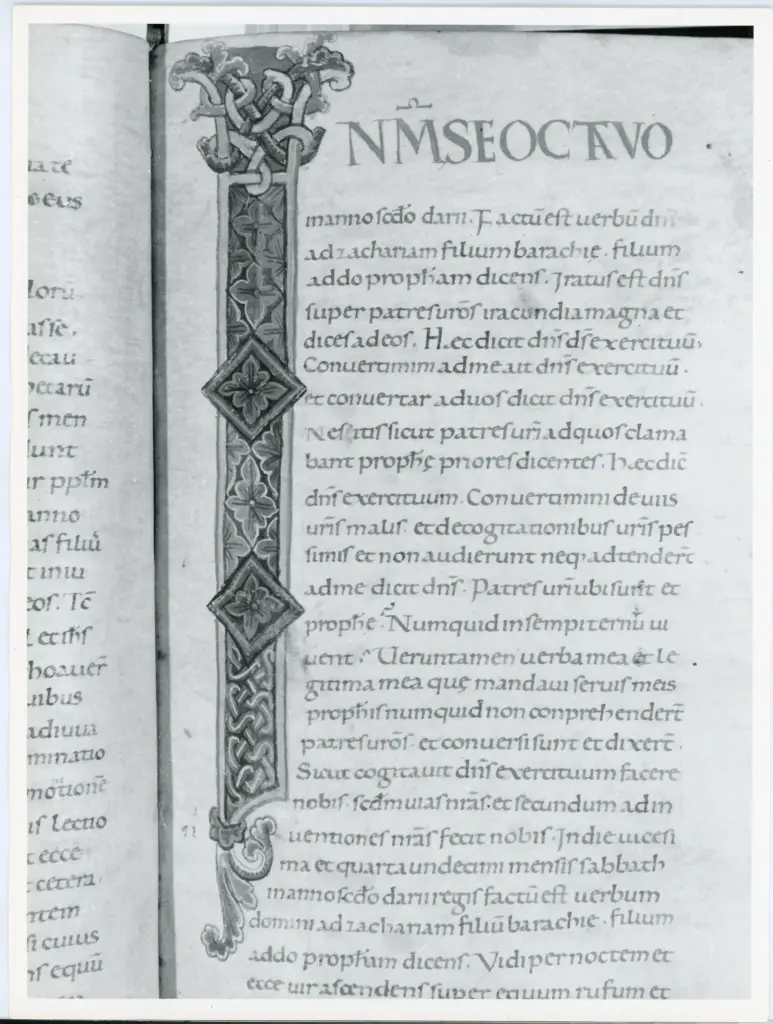 uate
oeus
loru̅.
asse.
ecau
petaru̅
s men
lunt
ur pph̅m
anno
as filiu̅
t in iu
eos. Tc̅
t et ih̅s
hoauer̅
uibus
adiuua
minatio
motione̅
us lectio
t ecce
t cetera.
ntem
si cuius
ns equu̅
IN M̅SE OCTAVO
in anno sc̅do darii. Factu̅ est uerbu̅ dn̅i
ad zachariam filium barachie. filium
addo proph̅am dicens. Iratus est dn̅s
super patres uro̅s iracundia magna et
dices ad eos. Hec dicit dn̅s ds̅ exercituu̅.
Conuertimini ad me ait dn̅s exercituu̅.
et conuertar ad uos dicit dn̅s exercituu̅.
Ne sitis sicut patres uri̅ ad quos clama
bant proph̅ę priores dicentes. Hec dic̅
dn̅s exercituum. Conuertimini de uiis
uri̅s malis. et de cogitationibus uri̅s pes
simis et non audierunt neq; adtender̅t
ad me dicit dn̅s. Patres uri̅ ubi sunt et
proph̅e. Numquid in sempiternu̅ ui
uent. Ueruntamen uerba mea et le
gitima mea quę mandaui seruis meis
proph̅is numquid non conprehender̅t
patres uro̅s. et conuersi sunt et dixer̅t.
Sicut cogitauit dn̅s exercituum facere
nobis. scd̅m uias nr̅as. et secundum adin
uentiones nr̅as fecit nobis. In die uicesi
ma et quarta undecimi mensis sabbath
in anno sc̅do darii regis factu̅ est uerbum
domini ad zachariam filiu̅ barachie. filium
addo proph̅am dicens. Vidi per noctem et
ecce uir ascendens super equum rufum et